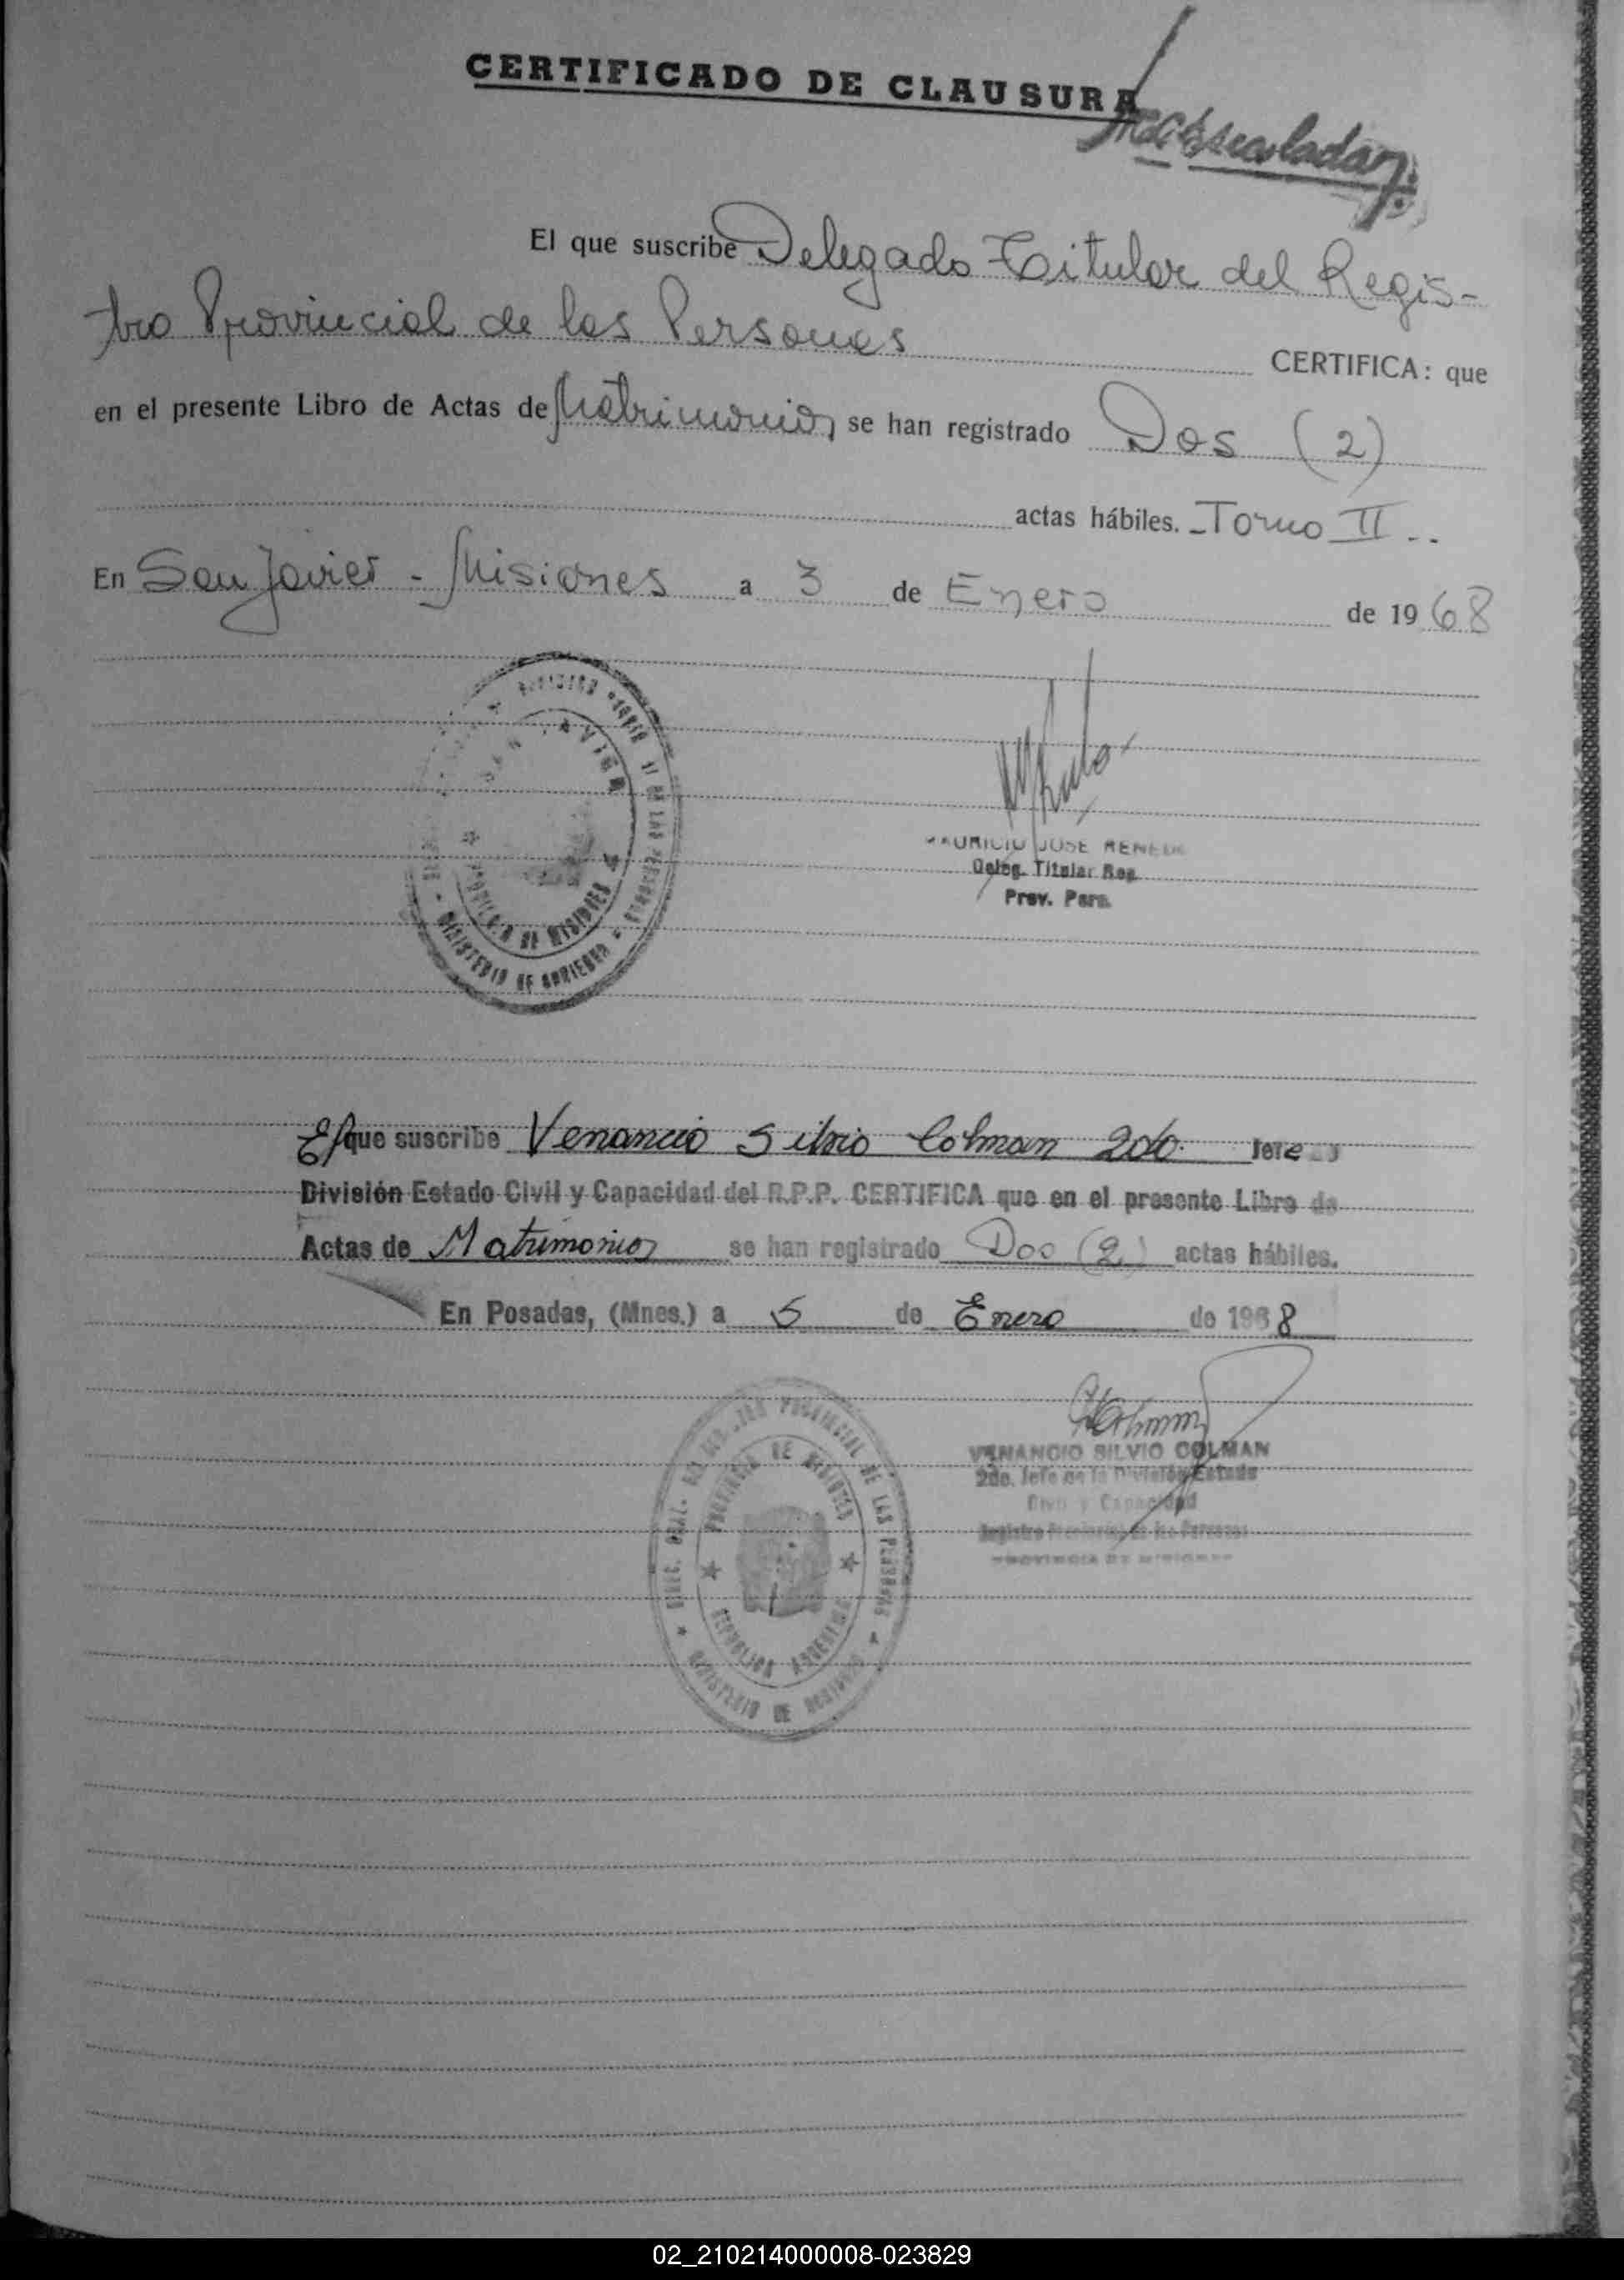 CERTIFICADO DE CLAUSURA
El que suscribe Delegado Titular del Regis-
tro Provincial de las Personas CERTIFICA: que
en el presente Libro de Actas de Matrimonios se han registrado Dos (2)
actas hábiles. - Tomo II --
En San Javier - Misiones a 3 de Enero de 1968
MAURICIO JOSE
Deleg. Titular Reg.
Prov. Pers.
PROVINCIA DE MISIONES
MINISTERIO DE GOBIERNO
El que suscribe Venancio Silvio Colman 2do. Jefe
División Estado Civil y Capacidad del R.P.P. CERTIFICA que en el presente Libro de
Actas de Matrimonios se han registrado Dos (2) actas hábiles.
En Posadas, (Mnes.) a 5 de Enero de 1968
VENANCIO SILVIO COLMAN
2do. Jefe de la División Estado
Civil y Capacidad
Registro Provincial de las Personas
PROVINCIA DE MISIONES
DIREC. GRAL. DEL REGISTRO PROVINCIAL DE LAS PERSONAS
PROVINCIA DE MISIONES
REPUBLICA ARGENTINA
MINISTERIO DE GOBIERNO
02_210214000008-023829